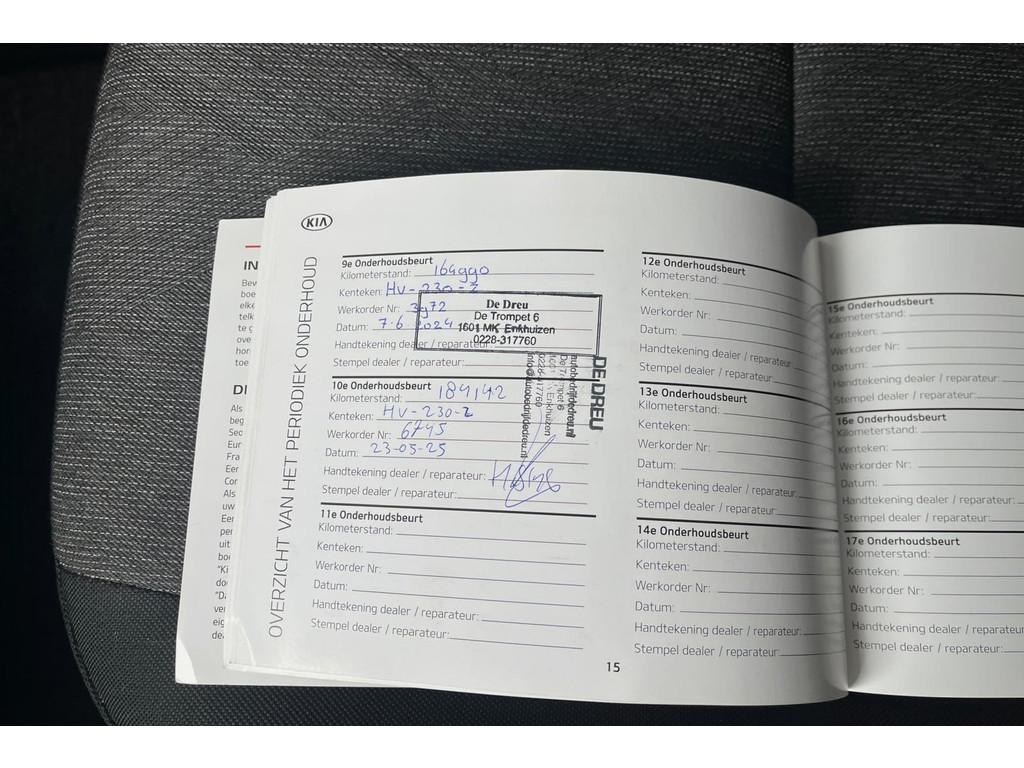 KIA
OVERZICHT VAN HET PERIODIEK ONDERHOUD
9e Onderhoudsbeurt
Kilometerstand: 164990
Kenteken: HV-230-Z
Werkorder Nr: 3972
Datum: 7-6 2024
Handtekening dealer / reparateur:
Stempel dealer / reparateur:
De Dreu
De Trompet 6
1601 MK Enkhuizen
0228-317760
10e Onderhoudsbeurt
Kilometerstand: 184142
Kenteken: HV-230-Z
Werkorder Nr: 6745
Datum: 23-05-25
Handtekening dealer / reparateur:
Stempel dealer / reparateur:
DE DREU
autobedrijfdedreu.nl
De Trompet 6
1601 Enkhuizen
0228-317760
info@autobedrijfdedreu.nl
11e Onderhoudsbeurt
Kilometerstand:
Kenteken:
Werkorder Nr:
Datum:
Handtekening dealer / reparateur:
Stempel dealer / reparateur:
12e Onderhoudsbeurt
Kilometerstand:
Kenteken:
Werkorder Nr:
Datum:
Handtekening dealer / reparateur:
Stempel dealer / reparateur:
13e Onderhoudsbeurt
Kilometerstand:
Kenteken:
Werkorder Nr:
Datum:
Handtekening dealer / reparateur:
Stempel dealer / reparateur:
14e Onderhoudsbeurt
Kilometerstand:
Kenteken:
Werkorder Nr:
Datum:
Handtekening dealer / reparateur:
Stempel dealer / reparateur:
15
15e Onderhoudsbeurt
Kilometerstand:
Kenteken:
Werkorder Nr:
Datum:
Handtekening dealer / reparateur:
Stempel dealer / reparateur:
16e Onderhoudsbeurt
Kilometerstand:
Kenteken:
Werkorder Nr:
Datum:
Handtekening dealer / reparateur:
Stempel dealer / reparateur:
17e Onderhoudsbeurt
Kilometerstand:
Kenteken:
Werkorder Nr:
Datum:
Handtekening dealer / reparateur:
Stempel dealer / reparateur: